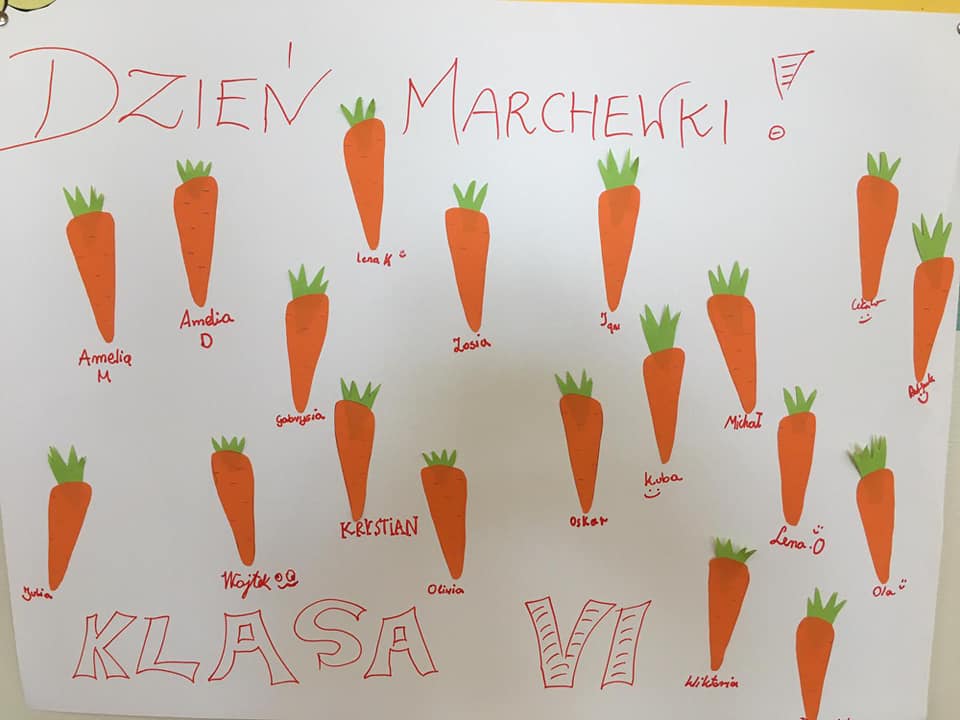 DZIEŃ MARCHEWKI!
Lena K
Amelia
D
Amelia
M
Zosia
Gabrysia
Michał
Kuba
KRYSTIAN
Oskar
Lena.O
Julia
Wojtek
Oliwia
Ola
Wiktoria
KLASA VI